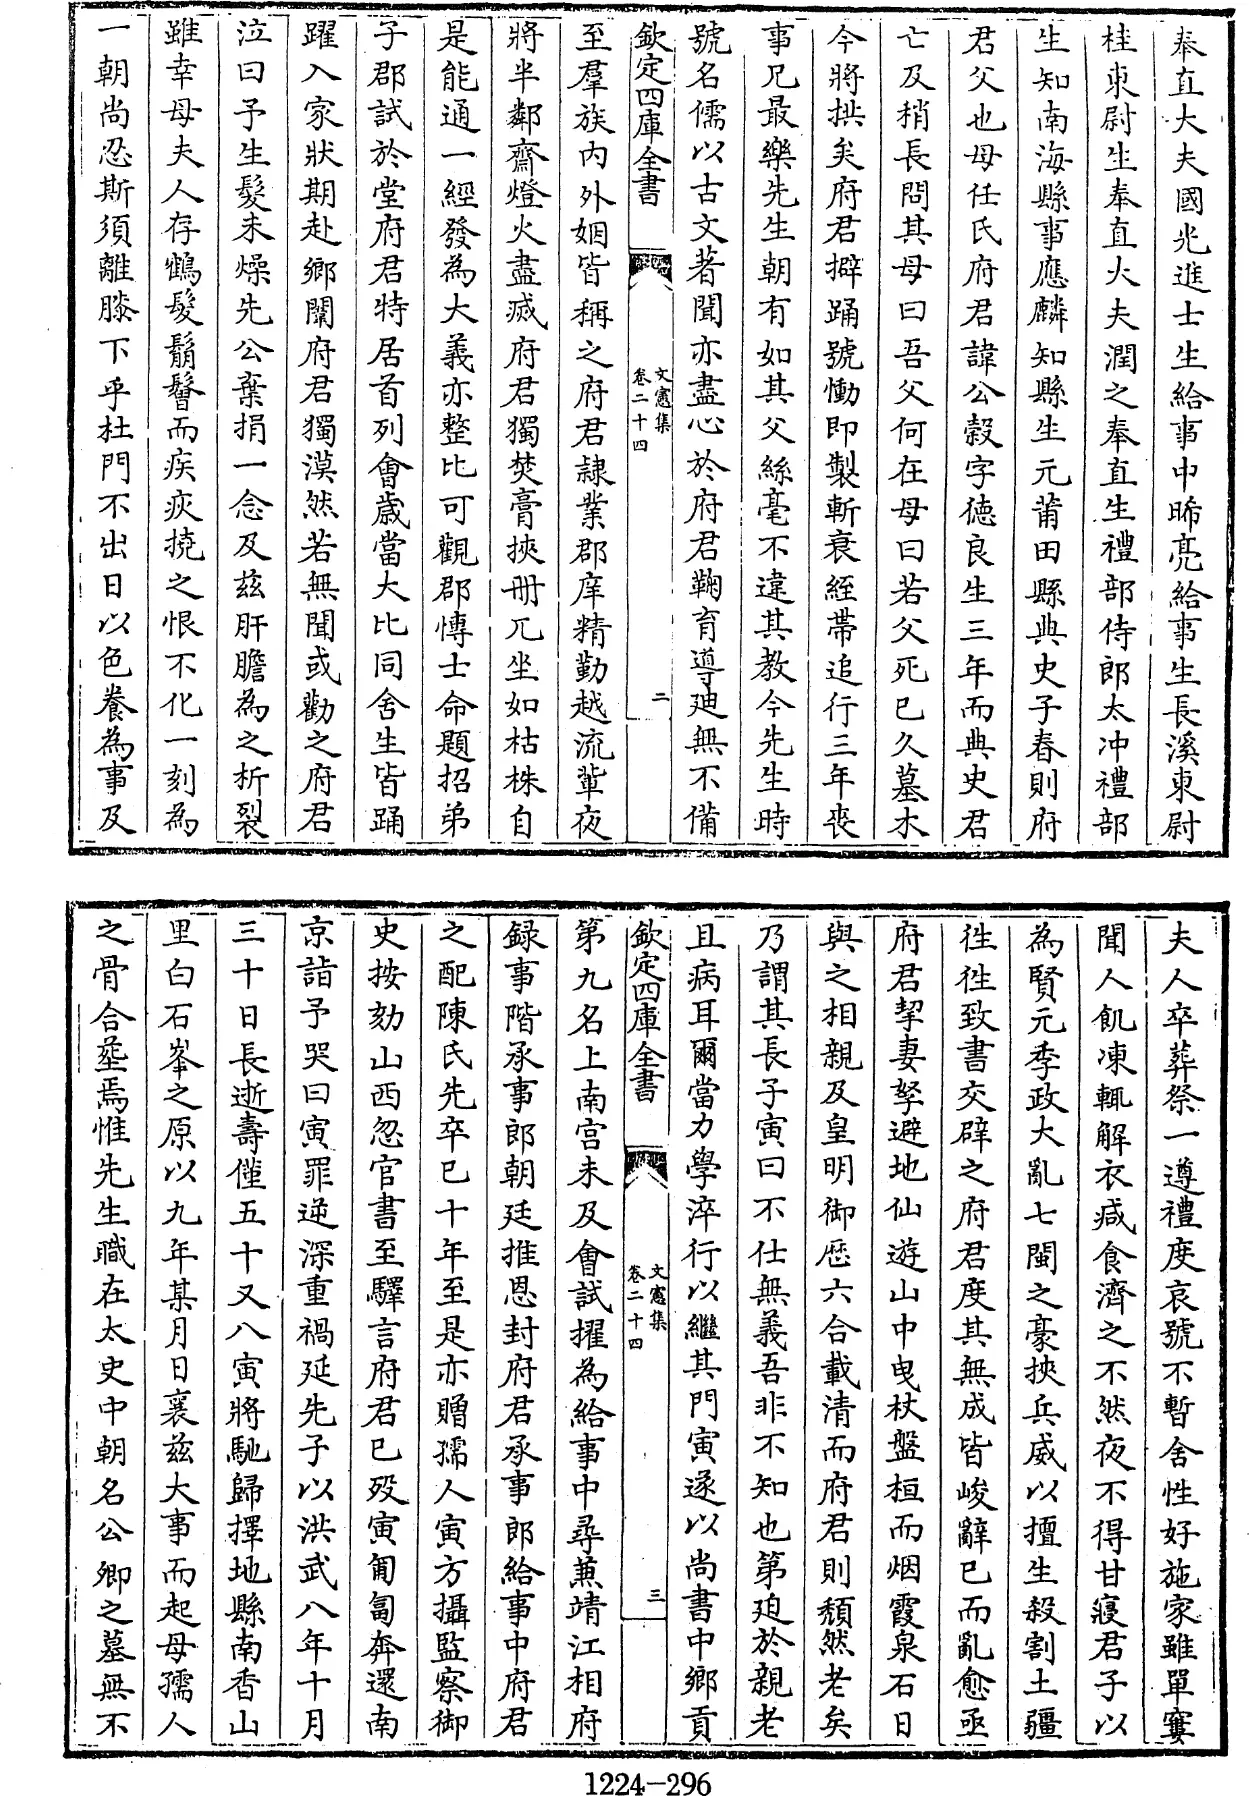 奉直大夫國兆進士生給事中晞亮給事生長溪東尉
桂東尉生奉直大夫潤之奉直生禮部侍郎太冲禮部
生知南海縣事應麟知縣生元莆田縣典史子春則府
君父也母任氏府君諱公縠字徳良生三年而典史君
亡及稍長問其母曰吾父何在母曰若父死已久墓木
今將拱矣府君擗踊號慟即製斬衰絰帶追行三年喪
事兄最樂先生朝有如其父絲毫不違其教今先生時
號名儒以古文著聞亦盡心於府君鞠育導廸無不備
欽定四庫全書
文憲集
卷二十四
二
至羣族内外姻皆稱之府君隷業郡庠精勤越流軰夜
將半鄰齋燈火盡滅府君獨焚膏挾冊兀坐如枯株自
是能通一經發為大義亦整比可觀郡博士命題招弟
子郡試於堂府君特居首列會歳當大比同舍生皆踊
躍入家狀期赴鄉闈府君獨漠然若無聞或勸之府君
泣曰予生髮未燥先公棄捐一念及兹肝膽為之析裂
雖幸母夫人存鶴髮鬅鬙而疾疢撓之恨不化一刻為
一朝尚忍斯須離膝下乎杜門不出日以色養為事及
夫人卒葬祭一遵禮度哀號不暫舍性好施家雖單窶
聞人飢凍輙解衣减食濟之不然夜不得甘寢君子以
為賢元季政大亂七閩之豪挾兵威以擅生殺割土疆
徃徃致書交辟之府君度其無成皆峻辭已而亂愈亟
府君挈妻孥避地仙遊山中曳杖盤桓而烟霞泉石日
與之相親及皇明御歴六合載清而府君則頽然老矣
乃謂其長子寅曰不仕無義吾非不知也第廹於親老
且病耳爾當力學淬行以繼其門寅遂以尚書中鄉貢
欽定四庫全書
文憲集
卷二十四
三
第九名上南宫未及會試擢為給事中尋兼靖江相府
録事階承事郎朝廷推恩封府君承事郎給事中府君
之配陳氏先卒已十年至是亦贈孺人寅方攝監察御
史按劾山西忽官書至驛言府君已殁寅匍匐奔還南
京詣予哭曰寅罪逆深重禍延先子以洪武八年十月
三十日長逝壽僅五十又八寅將馳歸擇地縣南香山
里白石峯之原以九年某月日襄兹大事而起母孺人
之骨合塟焉惟先生職在太史中朝名公卿之墓無不
1224-296